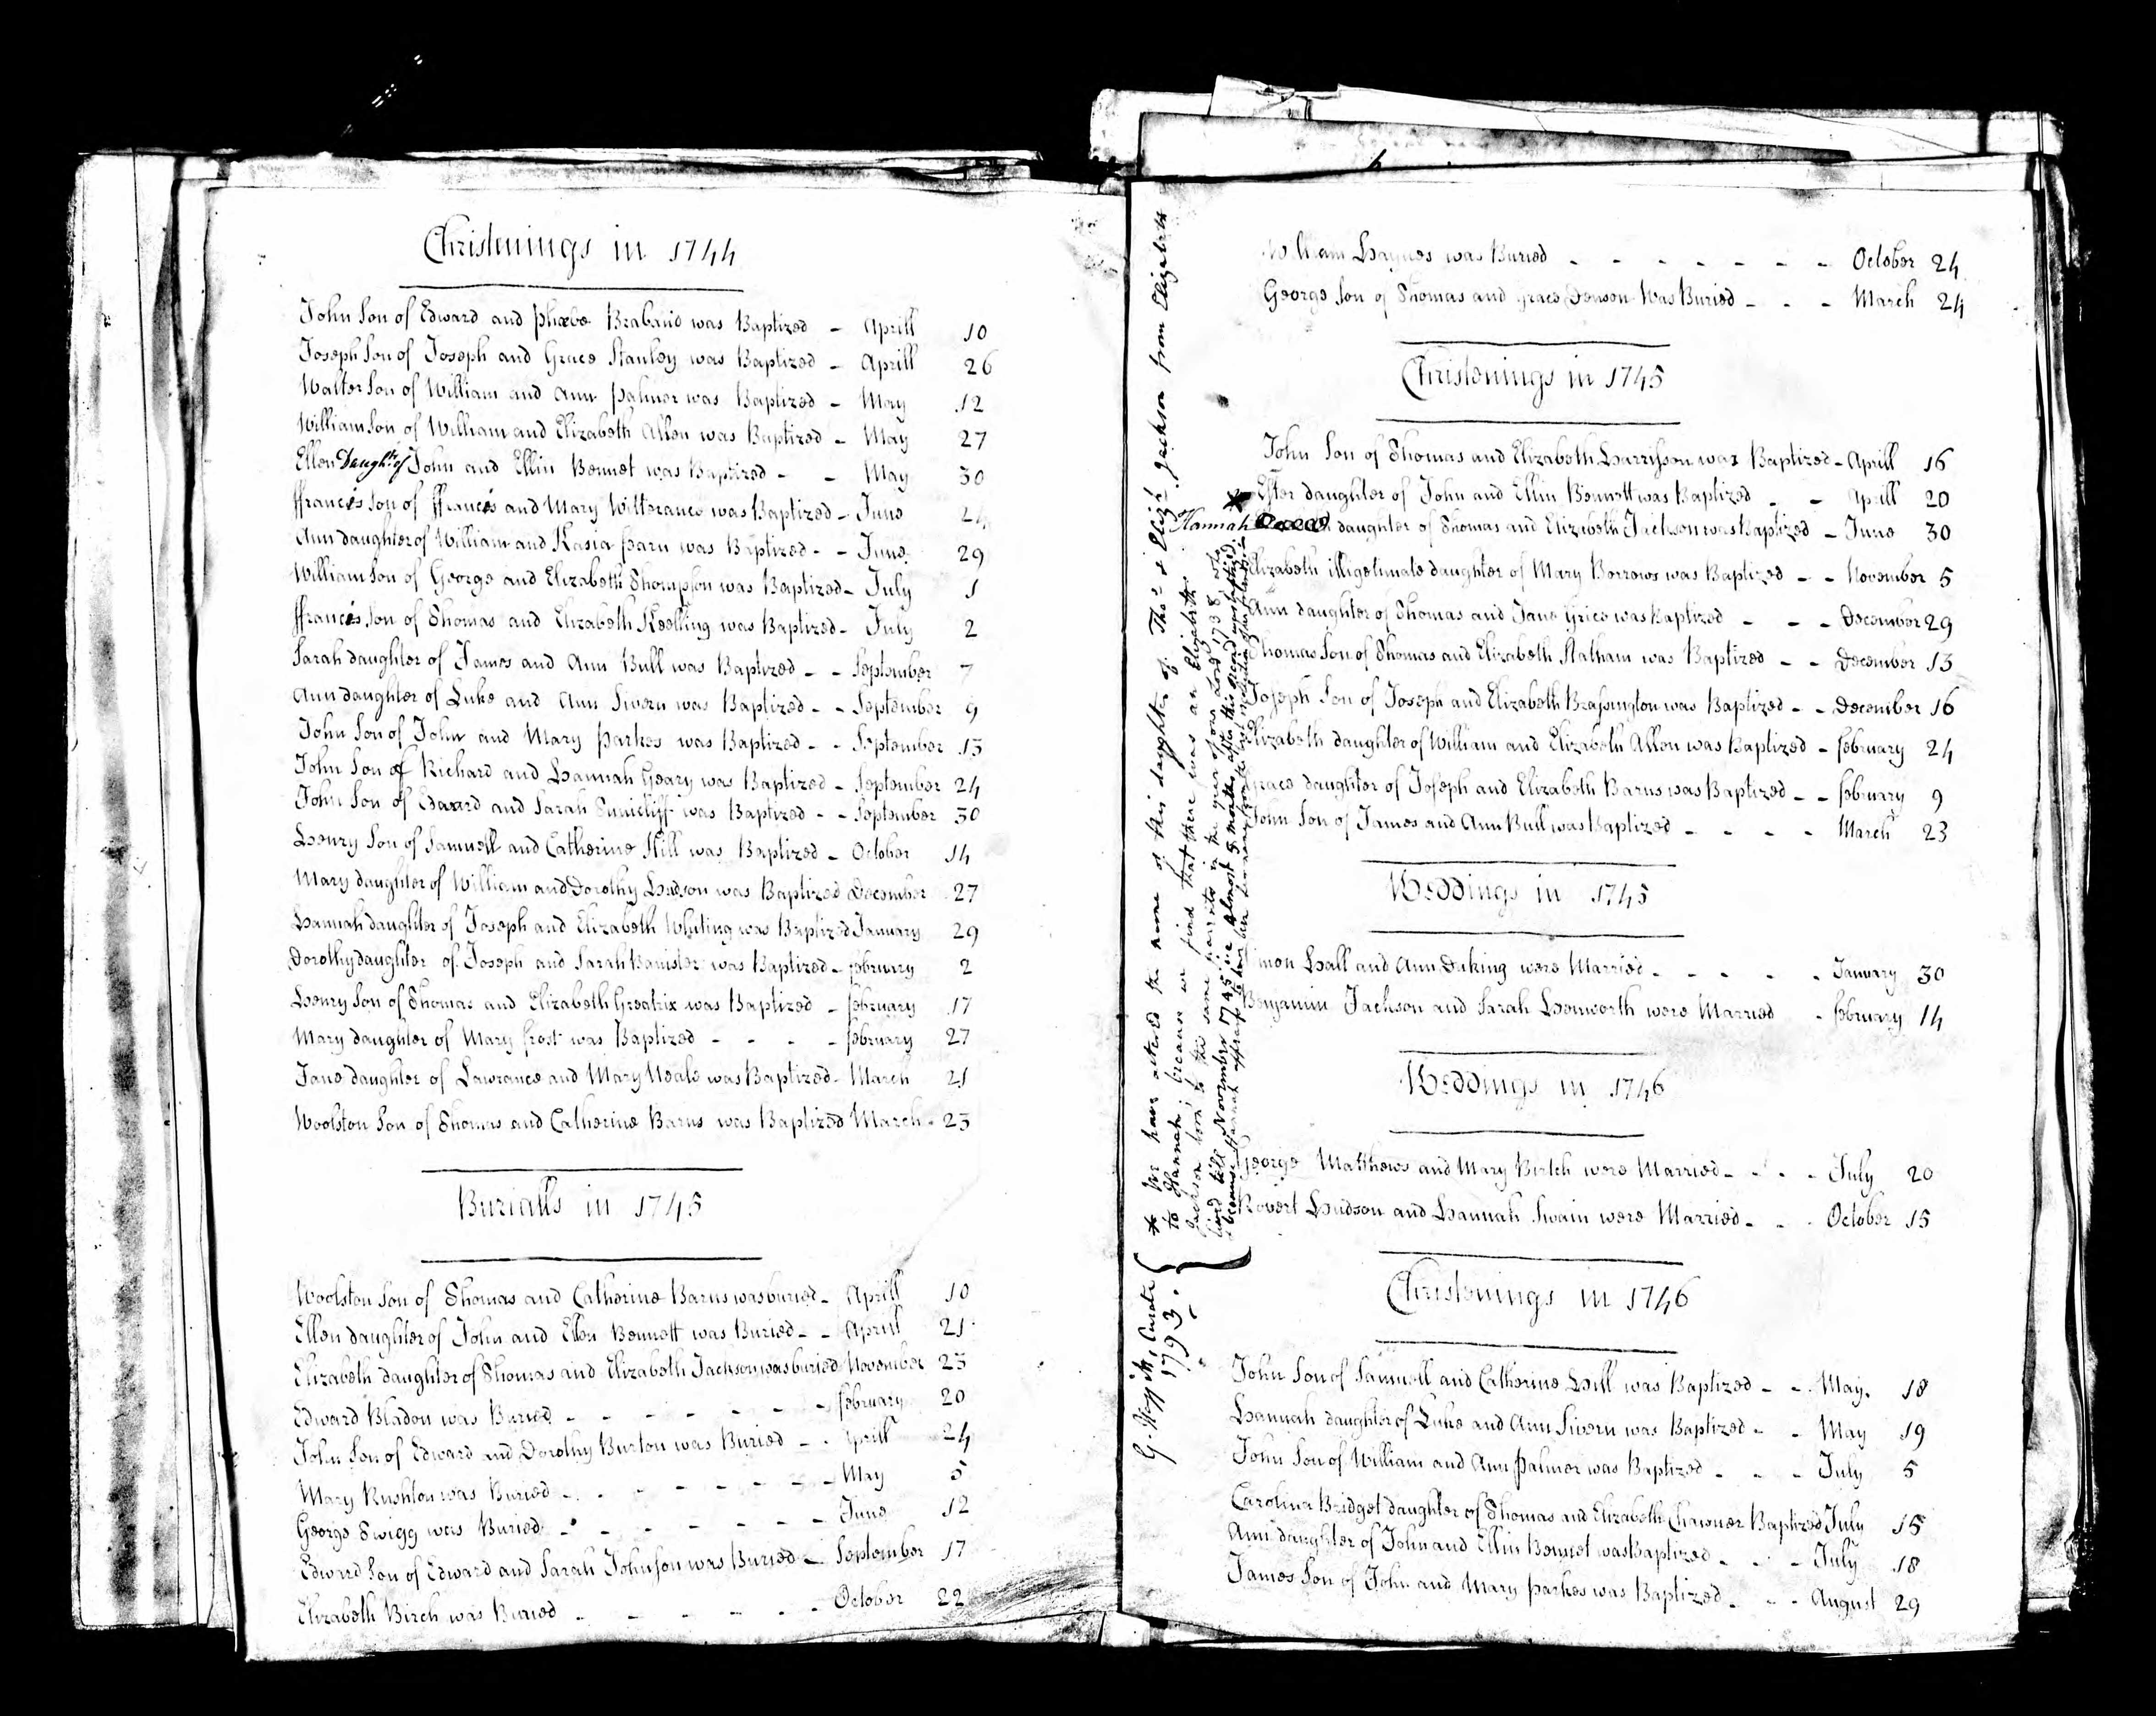 Christenings in 1744
John Son of Edward and Phœbe Braband was Baptized - Aprill 10
Joseph Son of Joseph and Grace Stanley was Baptized - Aprill 26
Walter Son of William and Ann Palmer was Baptized - May 12
William Son of William and Elizabeth Allen was Baptized - May 27
Ellen Daught.r of John and Ellin Bennet was Baptized - - May 30
ffrancis Son of ffrancis and Mary Witterance was Baptized - June 24
Ann daughter of William and Kasia Parn was Baptized - - June 29
William Son of George and Elizabeth Thompson was Baptized - July 1
ffrancis Son of Thomas and Elizabeth Keelling was Baptized - July 2
Sarah daughter of James and Ann Bull was Baptized - - September 7
Ann daughter of Luke and Ann Sivern was Baptized - - September 9
John Son of John and Mary Parkes was Baptized - - September 13
John Son of Richard and Hannah Geary was Baptized - September 24
John Son of Edward and Sarah was Baptized - - September 30
Henry Son of Samuell and Catherine Hill was Baptized - October 14
Mary daughter of William and Dorothy Hudson was Baptized December 27
Hannah daughter of Joseph and Elizabeth Whiting was Baptized January 29
Dorothy daughter of Joseph and Sarah Banister was Baptized - february 2
Henry Son of Thomas and Elizabeth Greatrix was Baptized - february 17
Mary daughter of Mary frost was Baptized - - - - february 27
Jane daughter of Lawrance and Mary Neale was Baptized - March 21
Woolston Son of Thomas and Catherine Barns was Baptized March - 23
Burialls in 1745
Woolston Son of Thomas and Catherine Barns was buried - Aprill 10
Ellen daughter of John and Ellen Bennett was Buried - - Aprill 21
Elizabeth daughter of Thomas and Elizabeth Jackson was buried November 23
Edward Bladon was Buried - - - - - - - february 20
John Son of Edward and Dorothy Burton was Buried - - Aprill 24
Mary Rushton was Buried - - - - - - - May 5
George Twigg was Buried - - - - - - - June 12
Edward Son of Edward and Sarah Johnson was Buried - September 17
Elizabeth Birch was Buried - - - - - - October 22
William Haynes was Buried - - - - - - - October 24
George Son of Thomas and Grace Denson Was Buried - - - March 24
Christenings in 1745
John Son of Thomas and Elizabeth Harrisson was Baptized - Aprill 16
Ester daughter of John and Ellin Bennett was Baptized - - Aprill 20
* Hannah daughter of Thomas and Elizabeth Jackson was Baptized - June 30
Elizabeth illigetimate daughter of Mary Borrows was Baptized - - November 5
Ann daughter of Thomas and Jane Grice was Baptized - - - December 29
Thomas Son of Thomas and Elizabeth Statham was Baptized - - December 13
Joseph Son of Joseph and Elizabeth Brassington was Baptized - - December 16
Elizabeth daughter of William and Elizabeth Allen was Baptized - february 24
Grace daughter of Joseph and Elizabeth Barns was Baptized - - february 9
John Son of James and Ann Bull was Baptized - - - - March 23
Weddings in 1745
Simon Hall and Ann Duking were Married - - - - - January 30
Benjamin Jackson and Sarah Henworth were Married - february 14
Weddings in 1746
George Matthews and Mary Birtch were Married - - - - July 20
Robert Hudson and Hannah Swain were Married - - - October 15
Christenings in 1746
John Son of Samuell and Catherine Hill was Baptized - - May 18
Hannah daughter of Luke and Ann Sivern was Baptized - - May 19
John Son of William and Ann Palmer was Baptized - - - July 5
Carolina Bridget daughter of Thomas and Elizabeth Chawner Baptized July 15
Ann daughter of John and Ellin Bennet was Baptized - - - July 18
James Son of John and Mary Parkes was Baptized - - - August 29
* We have altered the name of this daughter of Tho.s & Eliz.th Jackson from Elizabeth
to Hannah; because we find that there was an Elizabeth
Jackson born to the same parents in the year of our Lord 1738, who
lived till November 1745 i.e. almost 5 months after this second was baptized.
& because Hannah appears to have been
1793.